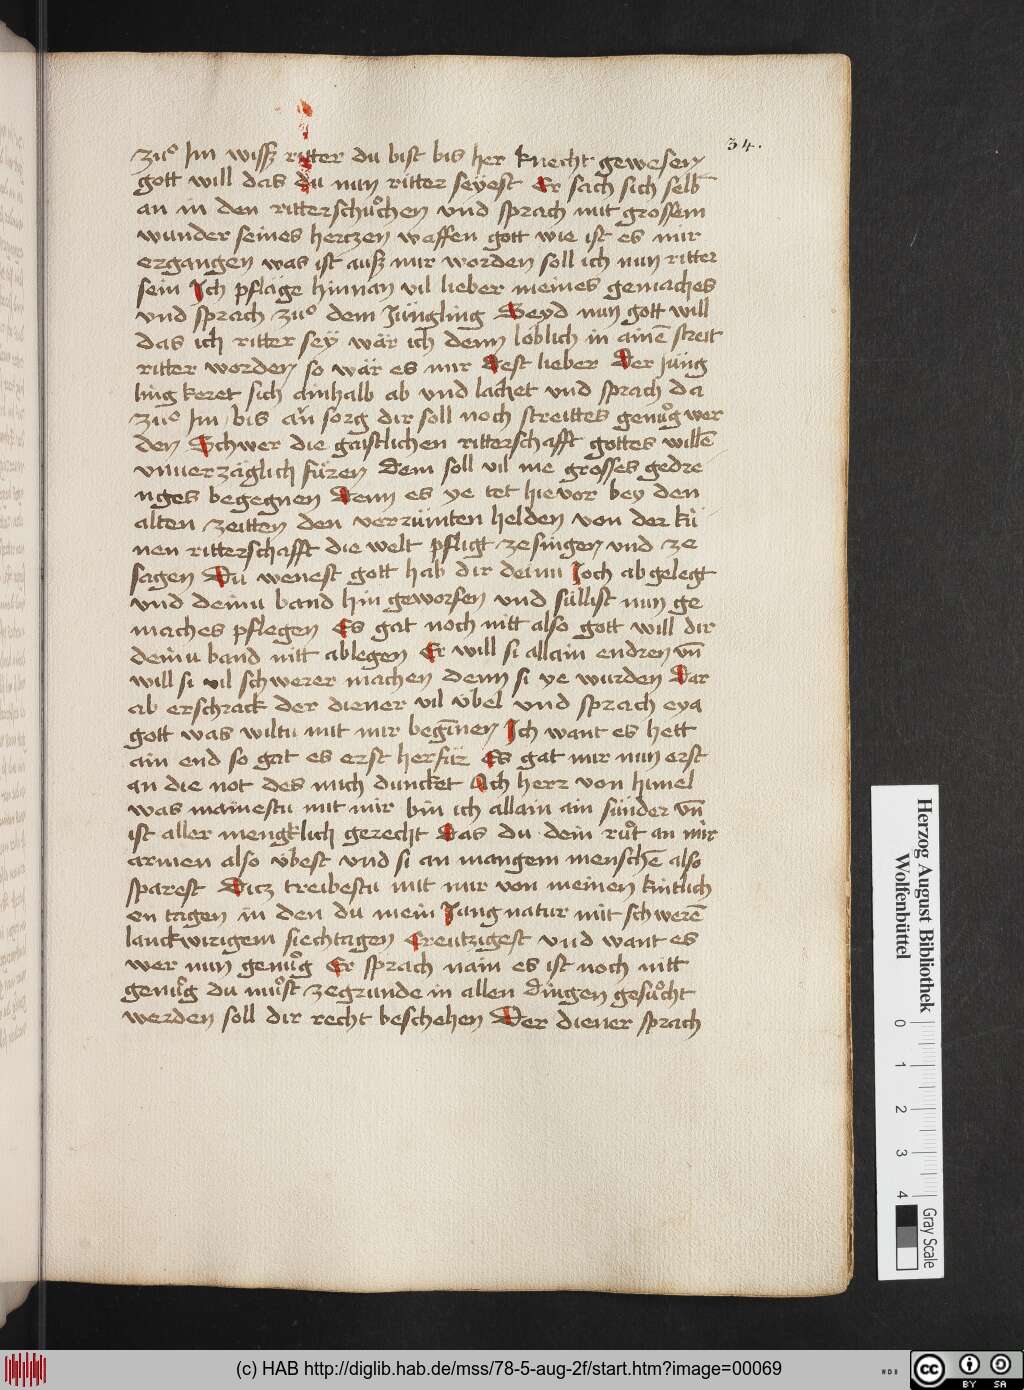 34.
zuͦ Im wissz ritter du bist bis her knecht gewesen
gott will das du nun ritter seyest Er sach sich selb
an in den ritterschuͦchen vnd sprach mit grossem
wunder seines hertzen waffen gott wie ist es mir
ergangen was ist ausz mir worden soll ich nun ritter
sein Ich pfläge hinnan vil lieber meines gemaches
vnd sprach zuͦ dem Jüngling Seyd nun gott will
das ich ritter sey wär ich denn löblich in ainē streit
ritter worden so wär es mir dest lieber Der jüng
ling keret sich ainhalb ab vnd lachet vnd sprach da
zuͦ Im bis an sorg dir soll noch streittes genuͦg wer
den Schwer die gaistlichen ritterschafft gottes willē
vnuerzäglich füren dem soll vil me grosses gedre
nges begegnen denn es ye tet hieuor bey den
alten zeitten den verzümten helden von der kü
nen ritterschafft die welt pfligt ze singen vnd ze
sagen Du wenest gott hab dir deinu Joch abgelegt
vnd deinu band hin geworfen vnd süllist nun ge
maches pflegen Es gat noch nitt also gott will dir
deinu band nitt ablegen Er will si allain endren vn̄
will si vil schwerer machen denn si ye wurden Dar
ab erschrack der diener vil übel vnd sprach eya
gott was wiltu mit mir begīnen Ich want es hett
ain end so gat es erst herfür Es gat mir nun erst
an die not des mich duncket Ach herr von himel
was mainestu mit mir bin ich allain ain sünder vn̄
ist aller mengklich gerecht Das du dein ruͦt an mir
armen also übest vnd si an mangem menschē also
sparest Dicz treibestu mit mir von meinen kintlich
en tagen in den du mein Jung natur mit schwerē
lanckwirigem siechtagen Creutzigest vnd want es
wer nun genuͦg Er sprach nain es ist noch nitt
genuͦg du muͦst ze grunde in allen dingen gesuͦcht
werden soll dir recht beschehen Der diener sprach
Herzog August Bibliothek
Wolfenbüttel
0
1
2
3
4
Gray Scale
(c) HAB http://diglib.hab.de/mss/78-5-aug-2f/start.htm?image=00069
WDB
cc
BY SA